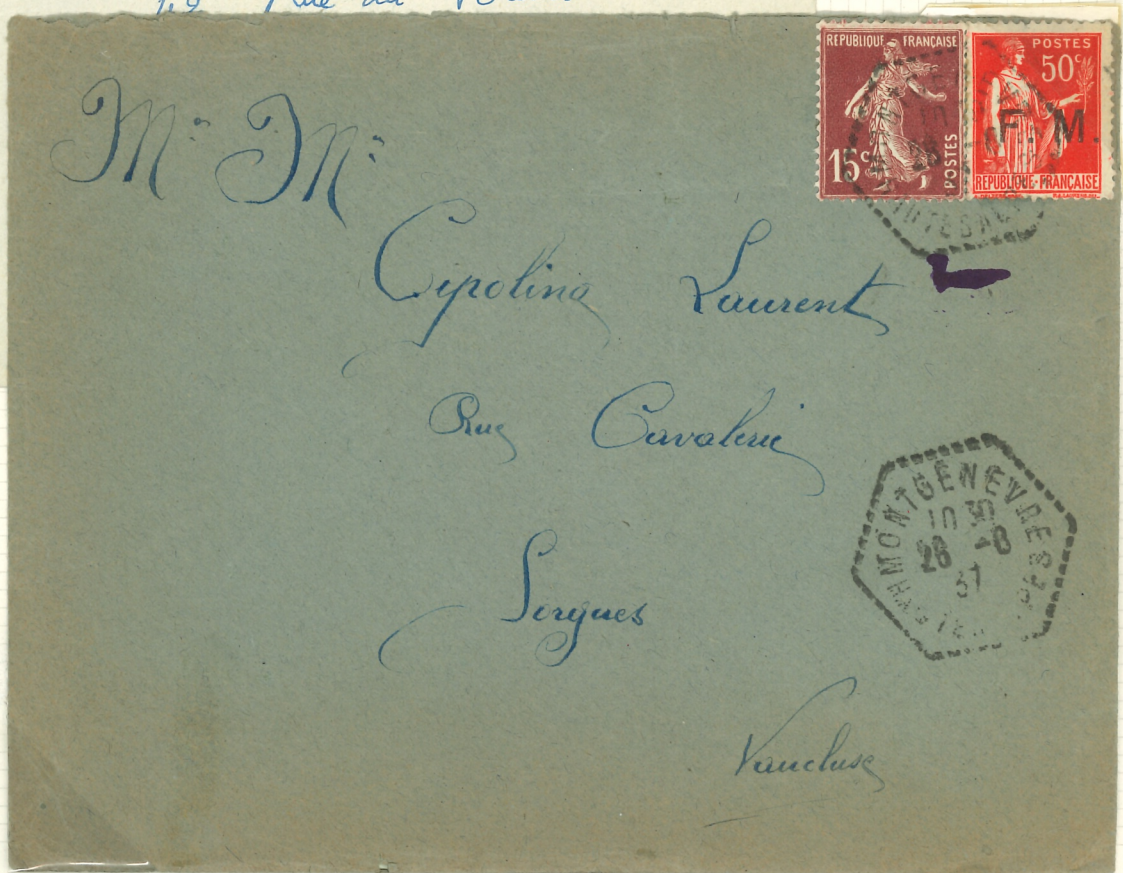 Rue du
REPUBLIQUE FRANÇAISE
15c
POSTES
POSTES
50c
F. M.
REPUBLIQUE FRANÇAISE
Mr Me
Cipolina Laurent
Rue Cavalerie
Sorgues
Vaucluse
MONTGENEVRE
10 30
26 -8
37